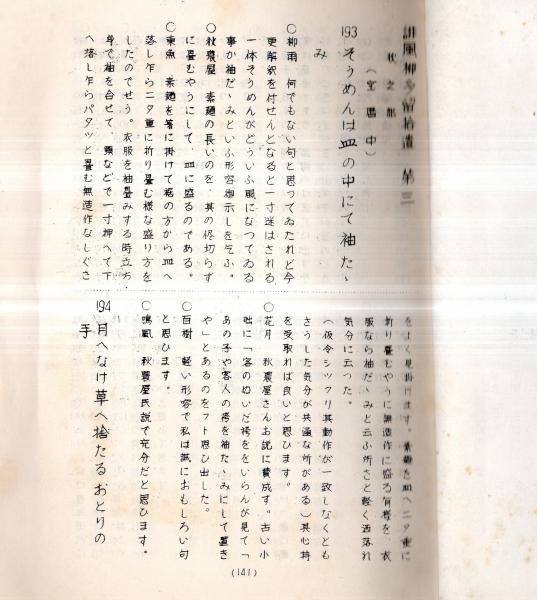 誹風柳多留拾遺 第三
秋之部
（宝暦中）
193 そうめんは皿の中にて袖たゝ
み
〇柳雨 何でもない句と思つてゐたれど今
更解釈を付せんとなると一寸迷はされる
一体そうめんがどういふ風になつてゐる
事か袖だゝみといふ形容御示しを乞ふ。
〇秋農屋 素麺の長いのを、其の侭切らず
に畳むやうにして、皿に盛るのである。
〇東魚 素麺を箸に掛けて裾の方から皿へ
落し乍ら二タ重に折り畳む様な盛り方を
したのでせう。衣服を袖畳みする時立方
身で袖を合せて、頸などで一寸押へて下
へ落し乍らパタッと畳む無造作なしぐさ
をよく見掛けます。素麺を皿へ二タ重に
折り畳むやうに無造作に盛る有様を、衣
服なら袖だゝみと云ふ所さと軽く洒落れ
気分に云つた。
（仮令シックリ其動作が一致しなくとも
さうした気分が共通な所がある）其心持
を受取れば良いと思ひます。
〇花月 秋農屋さんお説に賛成す。古い小
咄に「客のぬいだ袴をいらんが見て「
あの子や客人の袴を袖たゝみにして置き
や」とあるのをフト思ひ出した。
〇百樹 軽い形容で私は誠におもしろい句
と思ひます。
〇鳴鳳 秋農屋氏説で充分だと思ひます。
194 月へなけ草へ捨たるおとりの
手
(141)